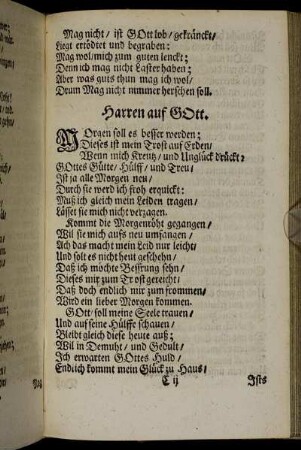 Mag nicht / ist GOtt lob / gekränckt /
Liegt ertödtet und begraben:
Mag wol / mich zum guten lenckt;
Denn ich mag nicht Laster haben;
Aber was guts thun mag ich wol /
Drum Mag nicht nimmer herschen soll.
Harren auf GOtt.
MOrgen soll es besser werden;
Dieses ist mein Trost auf Erden /
Wenn mich Kreutz / und Unglück drückt:
GOttes Gütte / Hülff / und Treu /
Ist ja alle Morgen neu /
Durch sie werd ich froh erquickt:
Muß ich gleich mein Leiden tragen /
Lässet sie mich nicht verzagen.
Kommt die Morgenröht gegangen /
Wil sie mich aufs neu umfangen /
Ach das macht mein Leid nur leicht /
Und solt es nicht heut geschehn /
Daß ich möchte Bessrung sehn /
Dieses mir zum Trost gereicht:
Daß doch endlich mir zum frommen /
Wird ein lieber Morgen kommen.
GOtt / soll meine Seele trauen /
Und auf seine Hülffe schauen /
Bleibt gleich diese heute auß;
Wil in Demuht / und Gedult /
Ich erwarten GOttes Huld /
Endlich kommt mein Glück zu Haus /
C ij
Ists